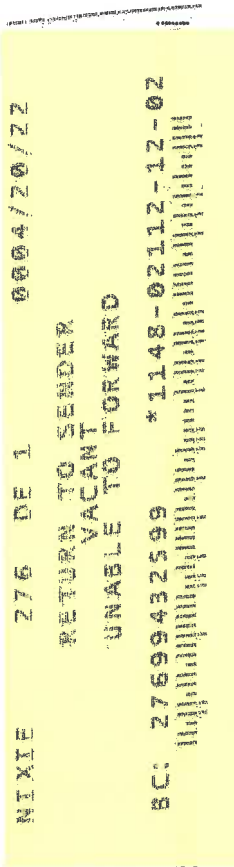 NIXIE 276 DE 1 0004/20/22
RETURN TO SENDER
VACANT
UNABLE TO FORWARD
BC: 27699432599 *1148-02112-12-02